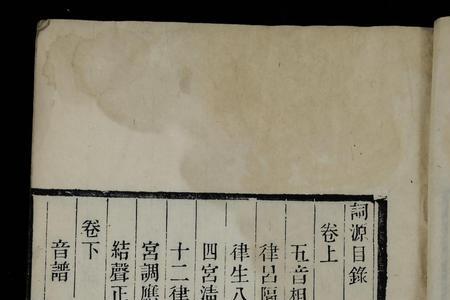 詞源目錄
卷上
五音相
律呂隔
律生八
四宮清
十二律
宮調應
結聲正
卷下
音譜